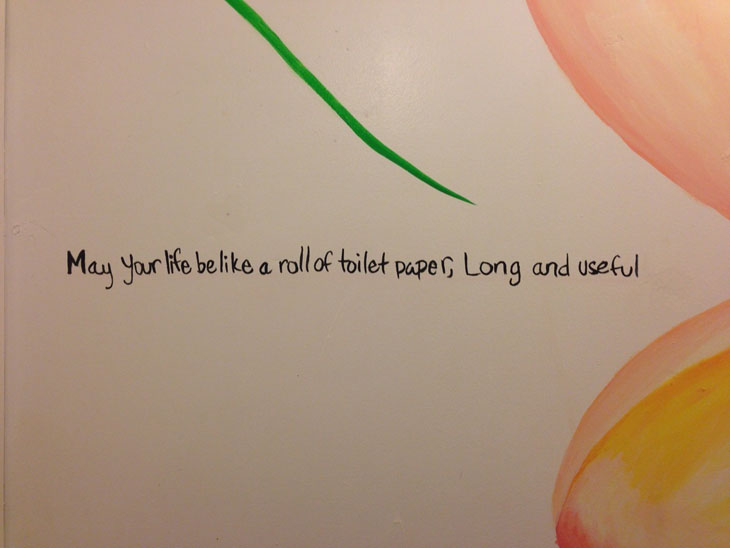 May your life be like a roll of toilet paper, Long and useful